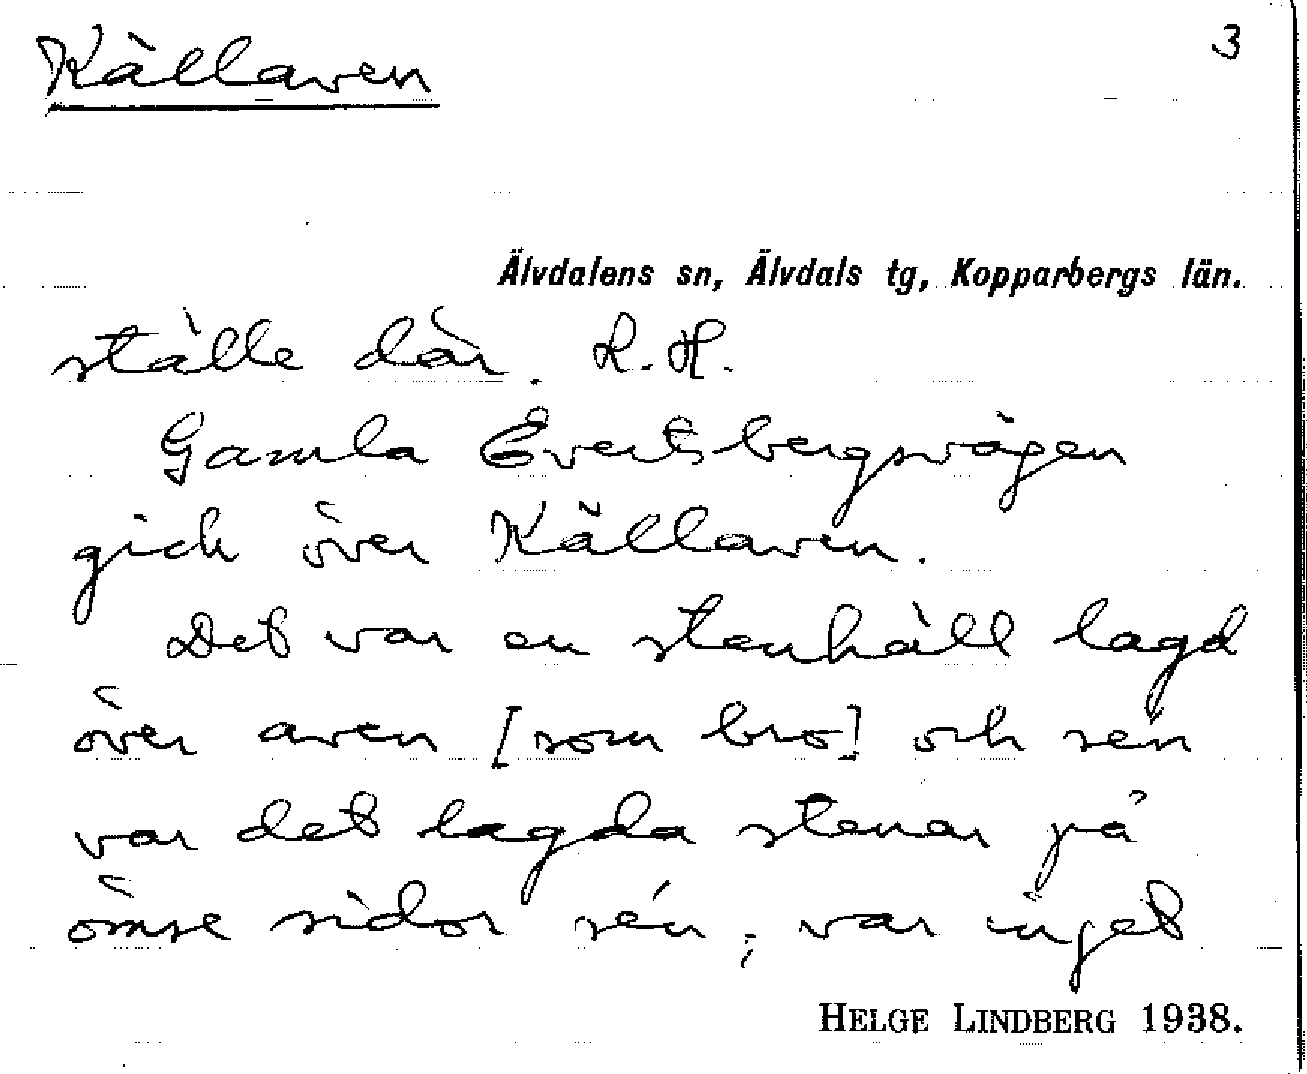 Källaven
3
Älvdalens sn, Älvdals tg, Kopparbergs län.
ställe där. L.H.
Gamla Evertsbergsvägen
gick över Källaven.
Det var en stenhäll lagd
över aven [som bro] och sén
var det lagda stenar på
ömse sidor sén; var inget
HELGE LINDBERG 1938.